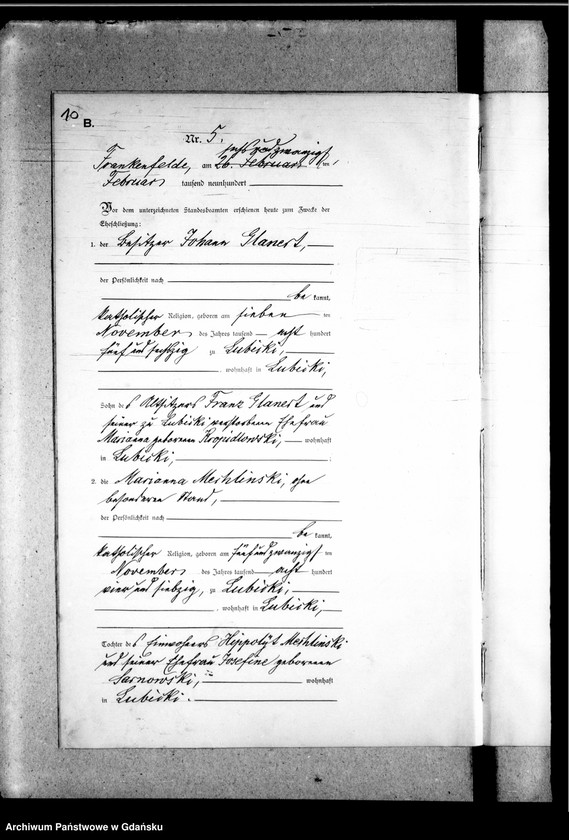 10
B.
Nr. 5.
sechsundzwanzigs
Frankenfelde, am 26. Februar ten
Februar tausend neunhundert
Vor dem unterzeichneten Standesbeamten erschienen heute zum Zwecke der
Eheschließung:
1. der Besitzer Johann Glanert,
der Persönlichkeit nach
be kannt,
katholischer Religion, geboren am sieben ten
November des Jahres tausend acht hundert
fünf und sechzig zu Lubicki,
, wohnhaft in Lubicki,
Sohn des Altsitzers Franz Glanert und
seiner zu Lubicki verstorbenen Ehefrau
Marianna geborenen Kropidlowski, wohnhaft
in Lubicki,
2. die Marianna Mechlinski, ohne
besonderen Stand,
der Persönlichkeit nach
be kannt,
katholischer Religion, geboren am fünfundzwanzigs ten
November des Jahres tausend acht hundert
vier und siebzig, zu Lubicki,
, wohnhaft in Lubicki,
Tochter des Einwohners Hippolyt Mechlinski
und seiner Ehefrau Josefine geborenen
Sarnowski, wohnhaft
in Lubicki.
Archiwum Państwowe w Gdańsku